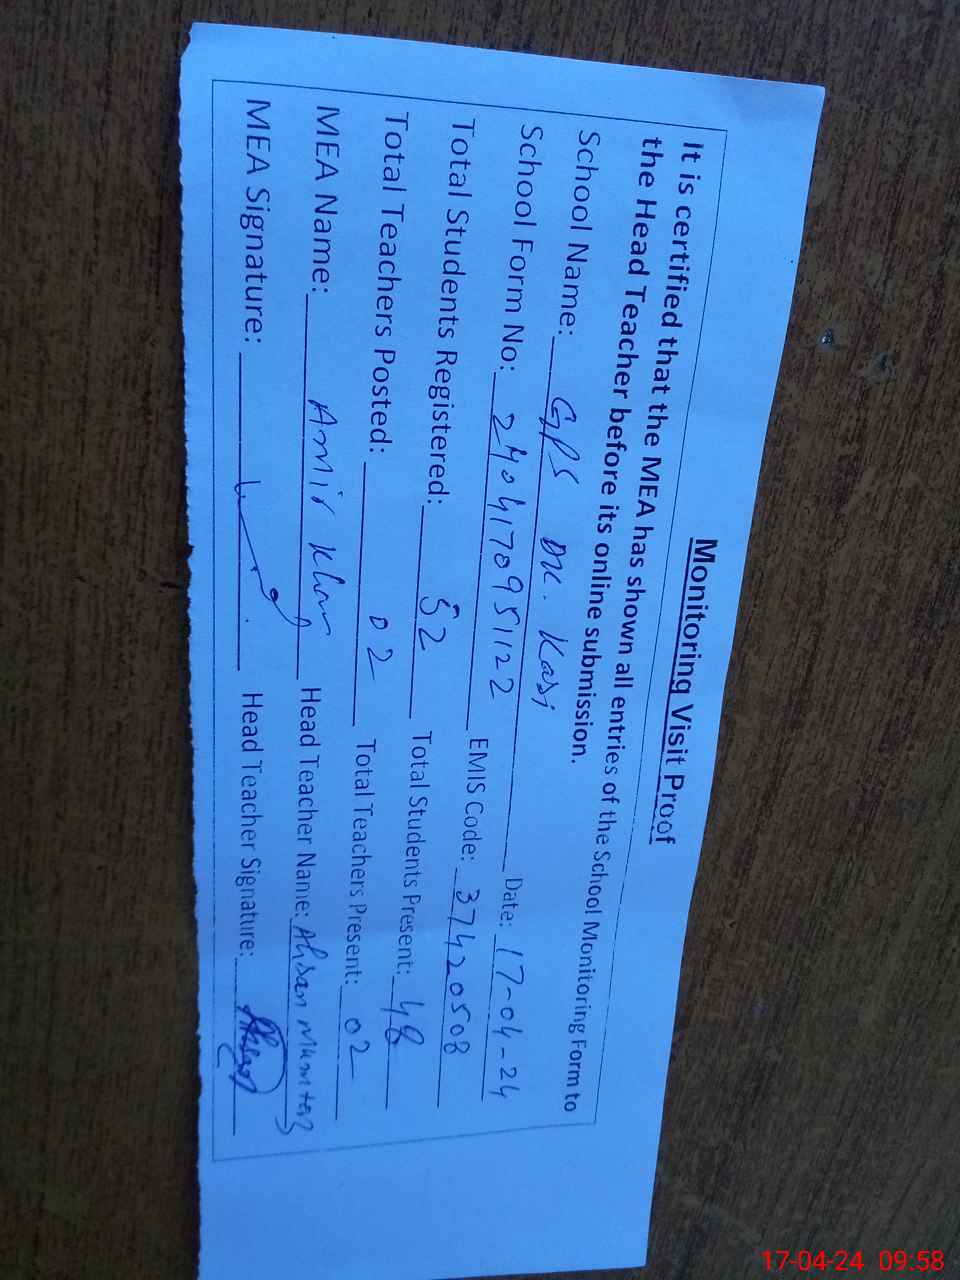 Monitoring Visit Proof
It is certified that the MEA has shown all entries of the School Monitoring Form to
the Head Teacher before its online submission.
School Name: GPS DK. Kasi Date: 17-04-24
School Form No: 2404170951122 EMIS Code: 37420508
Total Students Registered: 52 Total Students Present: 48
Total Teachers Posted: 02 Total Teachers Present: 02
MEA Name: Amir Khan Head Teacher Name: Ahsan Mumtaz
MEA Signature: Head Teacher Signature:
17-04-24 09:58